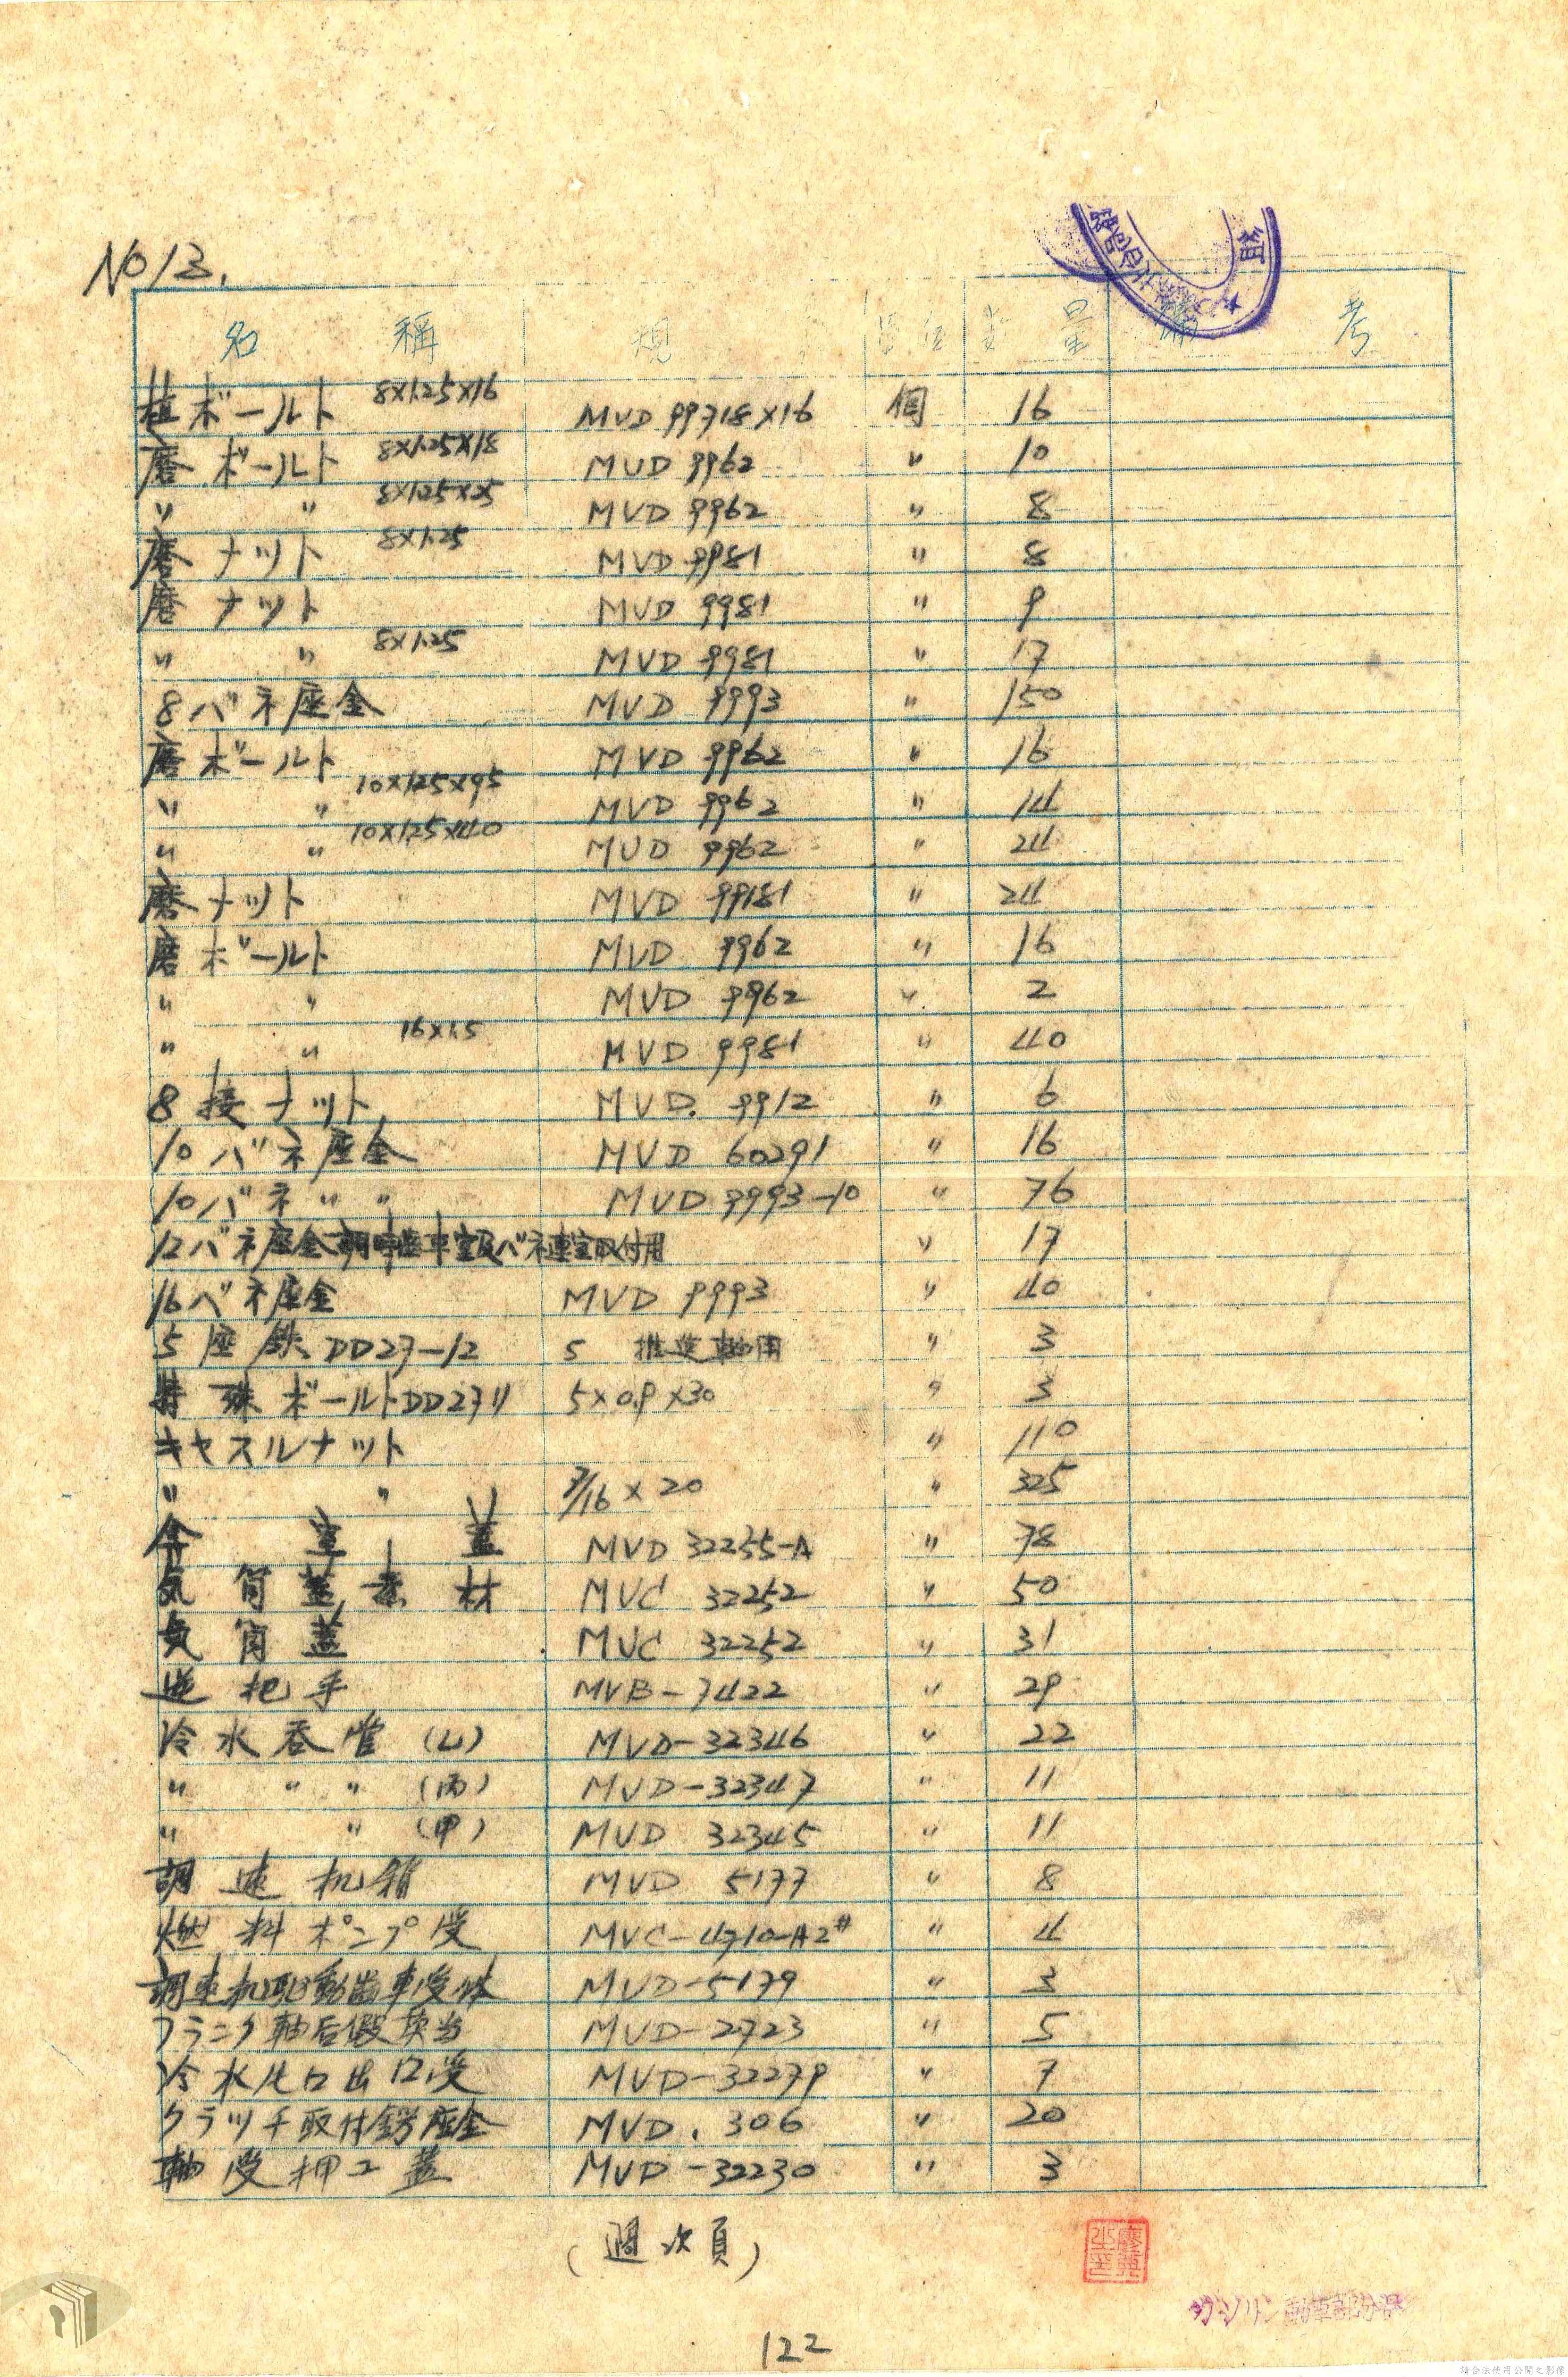 No 13.
名 稱 規 數 量 備 考
植ボールト 8×1.25×16 MVD 99718×16 個 16
磨ボールト 8×1.25×18 MVD 9962 〃 10
〃 〃 8×1.25×25 MVD 9962 〃 8
磨ナット 8×1.25 MVD 9981 〃 8
磨ナット MVD 9981 〃 9
〃 〃 8×1.25 MVD 9981 〃 17
8バネ座金 MVD 9993 〃 150
磨ボールト MVD 9962 〃 16
〃 〃 10×1.25×95 MVD 9962 〃 14
〃 〃 10×1.25×40 MVD 9962 〃 24
磨ナット MVD 99181 〃 24
磨ボールト MVD 9962 〃 16
〃 〃 MVD 9962 〃 2
〃 〃 16×1.5 MVD 9981 〃 40
8接ナット MVD. 9912 〃 6
10バネ座金 MVD 60291 〃 16
10バネ〃〃 MVD 9993-10 〃 76
12バネ座金 取付用 〃 17
16バネ座金 MVD 9993 〃 40
5座鉄 DD27-12 5 推進軸用 〃 3
特殊ボールトDD2711 5×0.9×30 〃 3
キャスルナット 〃 110
〃 〃 7/16×20 〃 325
室蓋 MVD 32255-A 〃 78
気筒蓋素材 MVC 32252 〃 50
気筒蓋 MVC 32252 〃 31
把手 MVB-7422 〃 29
冷水呑管(乙) MVD-32346 〃 22
〃 〃 〃 (丙) MVD-32347 〃 11
〃 〃 (甲) MVD 32345 〃 11
調速机箱 MVD 5177 〃 8
燃料ポンプ受 MVC-4710-A2# 〃 4
調速机駆動歯車受体 MVD-5179 〃 3
クランク軸后 当 MVD-2723 〃 5
冷水 口出口受 MVD-32279 〃 7
クラッチ取付 座金 MVD. 306 〃 20
軸受押工蓋 MVD-32230 〃 3
(過次頁)
ガソリン動車部分品
122
請合法使用公開之影像